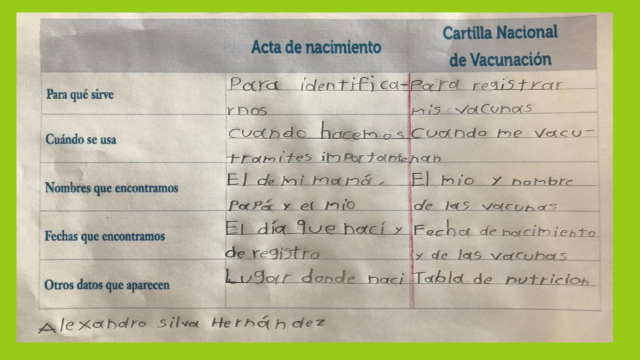 Acta de nacimiento
Cartilla Nacional
de Vacunación
Para qué sirve
Para identifica-
rnos
Para registrar
mis vacunas
Cuándo se usa
cuando hacemos
tramites importante
Cuando me vacu-
nan
Nombres que encontramos
El de mi mamá,
Papá y el mio
El mio y nombre
de las vacunas
Fechas que encontramos
El día que nací y
de registro
Fecha de nacimiento
y de las vacunas
Otros datos que aparecen
Lugar donde naci
Tabla de nutricion
Alexandro silva Hernández